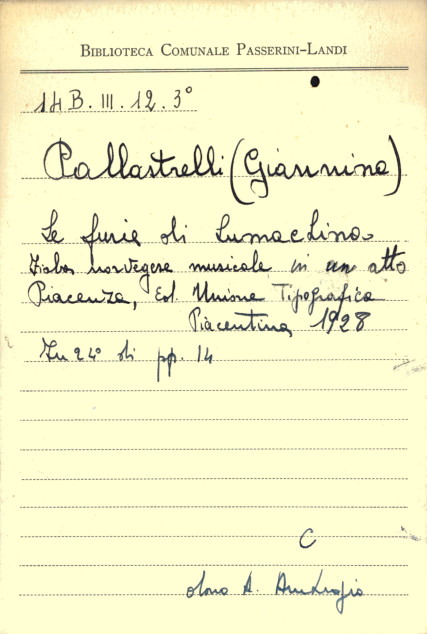 BIBLIOTECA COMUNALE PASSERINI-LANDI
14 B. III. 12. 3°
Pallastrelli (Giannina)
Le furie di Lumachina
Fiaba norvegese musicale in un atto
Piacenza, Ed. Unione Tipografica
Piacentina 1928
In 24° di pp. 14
C
dono A. Ambrogio